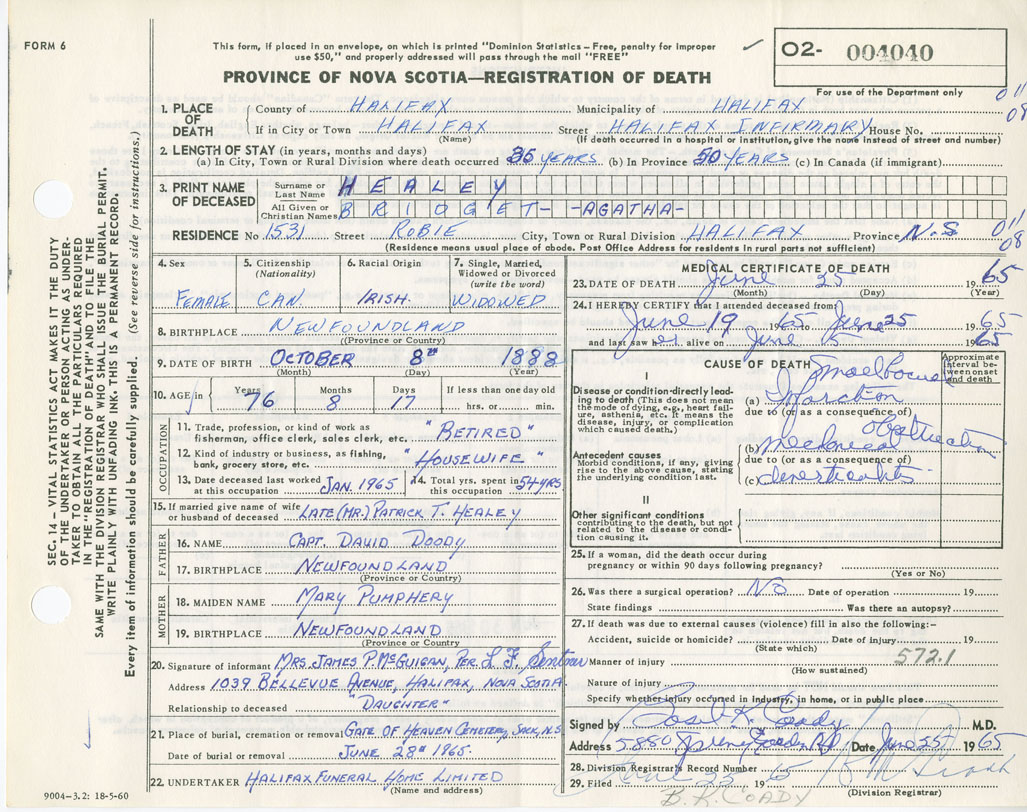 FORM 6
This form, if placed in an envelope, on which is printed "Dominion Statistics – Free, penalty for improper
use $50," and properly addressed will pass through the mail "FREE"
✓ O2- 004040
PROVINCE OF NOVA SCOTIA—REGISTRATION OF DEATH
For use of the Department only
011
08
1. PLACE OF DEATH
County of HALIFAX Municipality of HALIFAX
If in City or Town HALIFAX Street HALIFAX INFIRMARY House No.
(Name) (If death occurred in a hospital or institution, give the name instead of street and number)
2. LENGTH OF STAY (in years, months and days)
(a) In City, Town or Rural Division where death occurred 35 YEARS (b) In Province 50 YEARS (c) In Canada (if immigrant)
3. PRINT NAME OF DECEASED
Surname or Last Name HEALEY
All Given or Christian Names BRIDGET- -AGATHA-
RESIDENCE No 1531 Street ROBIE City, Town or Rural Division HALIFAX Province N.S 011
08
(Residence means usual place of abode. Post Office Address for residents in rural parts not sufficient)
4. Sex FEMALE
5. Citizenship (Nationality) CAN.
6. Racial Origin IRISH.
7. Single, Married, Widowed or Divorced (write the word) WIDOWED
8. BIRTHPLACE NEWFOUNDLAND
(Province or Country)
9. DATE OF BIRTH OCTOBER 8TH 1888
(Month) (Day) (Year)
10. AGE in Years 76 Months 8 Days 17 If less than one day old hrs. or min.
OCCUPATION
11. Trade, profession, or kind of work as
fisherman, office clerk, sales clerk, etc. "RETIRED"
12. Kind of industry or business, as fishing,
bank, grocery store, etc. "HOUSEWIFE"
13. Date deceased last worked at this occupation JAN. 1965
14. Total yrs. spent in this occupation 54 YRS
15. If married give name of wife
or husband of deceased LATE (MR.) PATRICK T. HEALEY
FATHER
16. NAME CAPT. DAVID DOODY
17. BIRTHPLACE NEWFOUNDLAND
(Province or Country)
MOTHER
18. MAIDEN NAME MARY PUMPHERY
19. BIRTHPLACE NEWFOUNDLAND
(Province or Country)
20. Signature of informant MRS. JAMES P. MCGUIGAN, PER. L F.
Address 1039 BELLEVUE AVENUE, HALIFAX, NOVA SCOTIA
Relationship to deceased "DAUGHTER"
21. Place of burial, cremation or removal GATE OF HEAVEN CEMETERY, SACK, N.S
Date of burial or removal JUNE 28TH 1965.
22. UNDERTAKER HALIFAX FUNERAL HOME LIMITED
(Name and address)
MEDICAL CERTIFICATE OF DEATH
23. DATE OF DEATH June 25 1965
(Month) (Day) (Year)
24. I HEREBY CERTIFY that I attended deceased from
June 19 1965 to June 25 1965
and last saw her alive on June 1965
CAUSE OF DEATH
Approximate interval between onset and death
I
Disease or condition directly leading to death (This does not mean the mode of dying, e.g., heart failure, asthenia, etc. It means the disease, injury, or complication which caused death.)
(a) Small bowel Infarction
due to (or as a consequence of)
(b) Mechanical obstruction
Antecedent causes
Morbid conditions, if any, giving rise to the above cause, stating the underlying condition last.
due to (or as a consequence of)
(c) diverticulitis
II
Other significant conditions
contributing to the death, but not related to the disease or condition causing it.
25. If a woman, did the death occur during
pregnancy or within 90 days following pregnancy?
(Yes or No)
26. Was there a surgical operation? No Date of operation 19
State findings Was there an autopsy?
27. If death was due to external causes (violence) fill in also the following:–
Accident, suicide or homicide? Date of injury 19
(State which) 572.1
Manner of injury
(How sustained)
Nature of injury
Specify whether injury occurred in industry, in home, or in public place
Signed by Basil K. Coady M.D.
Address 5880 Spring Garden Rd Date June 25 1965
28. Division Registrar's Record Number
29. Filed June 25 1965
(Division Registrar)
B. K. COADY
SEC. 14 – VITAL STATISTICS ACT MAKES IT THE DUTY
OF THE UNDERTAKER OR PERSON ACTING AS UNDER-
TAKER TO OBTAIN ALL THE PARTICULARS REQUIRED
IN THE "REGISTRATION OF DEATH" AND TO FILE THE
SAME WITH THE DIVISION REGISTRAR WHO SHALL ISSUE THE BURIAL PERMIT.
WRITE PLAINLY WITH UNFADING INK. THIS IS A PERMANENT RECORD.
Every item of information should be carefully supplied. (See reverse side for instructions.)
9004-3.2: 18-5-60